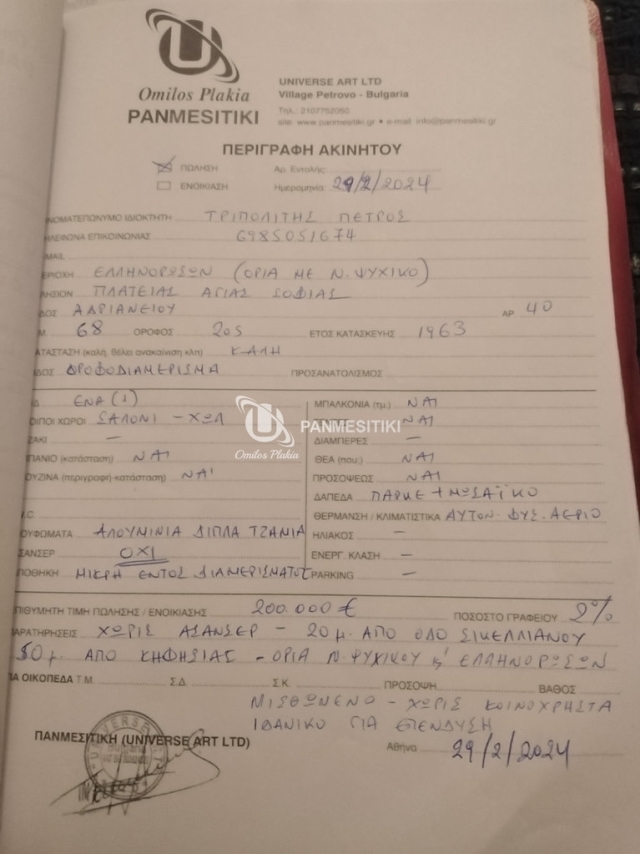 Omilos Plakia
PANMESITIKI
UNIVERSE ART LTD
Village Petrovo - Bulgaria
Τηλ.: 2107752060
site: www.panmesitiki.gr • e-mail: info@panmesitiki.gr
ΠΕΡΙΓΡΑΦΗ ΑΚΙΝΗΤΟΥ
ΠΩΛΗΣΗ Αρ. Εντολής
ΕΝΟΙΚΙΑΣΗ Ημερομηνία 29/2/2024
ΝΟΜΑΤΕΠΩΝΥΜΟ ΙΔΙΟΚΤΗΤΗ ΤΡΙΠΟΛΙΤΗΣ ΠΕΤΡΟΣ
ΗΛΕΦΩΝΑ ΕΠΙΚΟΙΝΩΝΙΑΣ 6985051674
MAIL
ΕΡΙΟΧΗ ΕΛΛΗΝΟΡΩΣΩΝ (ΟΡΙΑ ΜΕ Ν. ΨΥΧΙΚΟ)
ΛΗΣΙΟΝ ΠΛΑΤΕΙΑΣ ΑΓΙΑΣ ΣΟΦΙΑΣ
ΔΟΣ ΑΔΡΙΑΝΕΙΟΥ ΑΡ 40
Μ. 68 ΟΡΟΦΟΣ 2ος ΕΤΟΣ ΚΑΤΑΣΚΕΥΗΣ 1963
ΑΤΑΣΤΑΣΗ (καλή, θέλει ανακαίνιση κλπ) ΚΑΛΗ
ΔΟΣ ΟΡΟΦΟΔΙΑΜΕΡΙΣΜΑ ΠΡΟΣΑΝΑΤΟΛΙΣΜΟΣ
Δ ΕΝΑ (1) ΜΠΑΛΚΟΝΙΑ (τμ.) ΝΑΙ
ΟΙΠΟΙ ΧΩΡΟΙ ΣΑΛΟΝΙ - ΧΩΛ ΝΑΙ
PANMESITIKI
Omilos Plakia
ΖΑΚΙ — ΔΙΑΜΠΕΡΕΣ —
ΠΑΝΙΟ (κατάσταση) ΝΑΙ ΘΕΑ (που;) ΝΑΙ
ΟΥΖΙΝΑ (περιγραφή-κατάσταση) ΝΑΙ ΠΡΟΣΟΨΕΩΣ ΝΑΙ
ΔΑΠΕΔΑ ΠΑΡΚΕ + ΜΩΣΑΪΚΟ
.C. ΘΕΡΜΑΝΣΗ / ΚΛΙΜΑΤΙΣΤΙΚΑ ΑΥΤΟΝ. ΦΥΣ. ΑΕΡΙΟ
ΟΥΦΩΜΑΤΑ ΑΛΟΥΜΙΝΙΑ ΔΙΠΛΑ ΤΖΑΜΙΑ ΗΛΙΑΚΟΣ —
ΣΑΝΣΕΡ ΟΧΙ ΕΝΕΡΓ. ΚΛΑΣΗ —
ΠΟΘΗΚΗ ΜΙΚΡΗ ΕΝΤΟΣ ΔΙΑΜΕΡΙΣΜΑΤΟΣ PARKING —
ΠΙΘΥΜΗΤΗ ΤΙΜΗ ΠΩΛΗΣΗΣ / ΕΝΟΙΚΙΑΣΗΣ 200.000 € ΠΟΣΟΣΤΟ ΓΡΑΦΕΙΟΥ 2%
ΑΡΑΤΗΡΗΣΕΙΣ ΧΩΡΙΣ ΑΣΑΝΣΕΡ - 20μ. ΑΠΟ ΟΔΟ ΣΙΚΕΛΙΑΝΟΥ
50μ. ΑΠΟ ΚΗΦΗΣΙΑΣ - ΟΡΙΑ Ν. ΨΥΧΙΚΟΥ κ' ΕΛΛΗΝΟΡΩΣΩΝ
ΙΑ ΟΙΚΟΠΕΔΑ Τ.Μ. Σ.Δ. Σ.Κ. ΠΡΟΣΟΨΗ ΒΑΘΟΣ
ΜΙΣΘΩΜΕΝΟ - ΧΩΡΙΣ ΚΟΙΝΟΧΡΗΣΤΑ
ΙΔΑΝΙΚΟ ΓΙΑ ΕΠΕΝΔΥΣΗ
ΠΑΝΜΕΣΙΤΙΚΗ (UNIVERSE ART LTD)
Αθήνα 29/2/2024